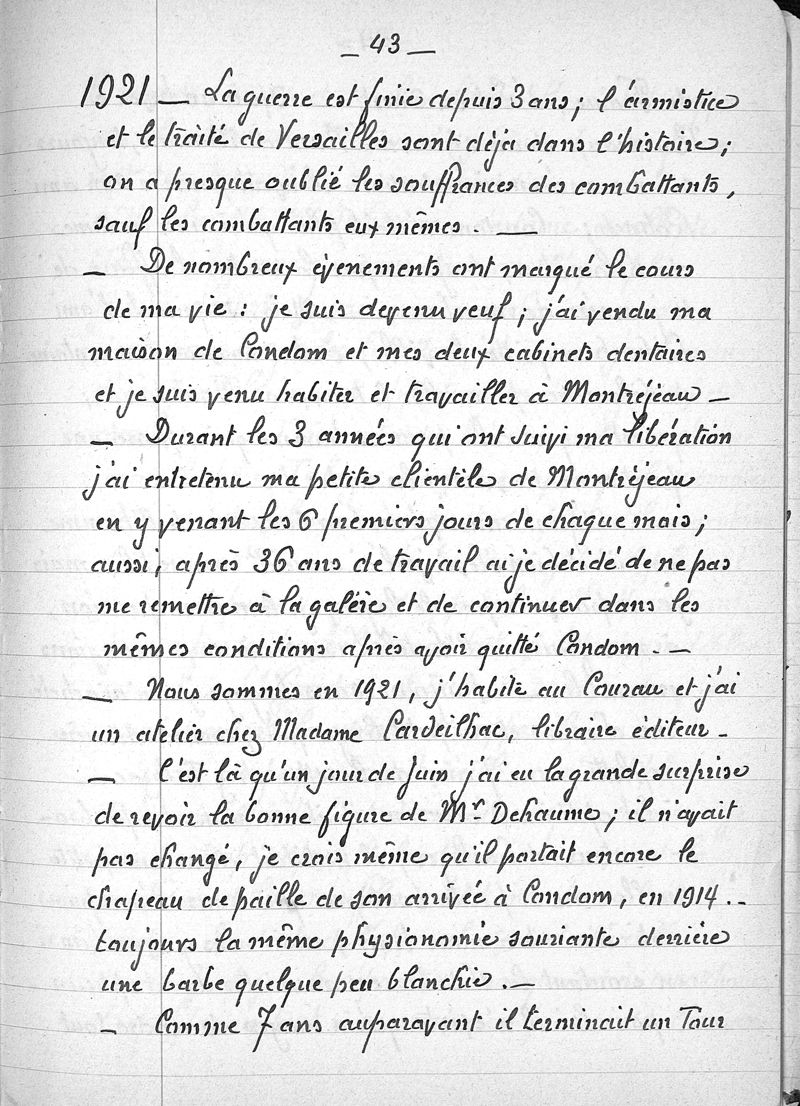 _ 43 _
1921 _ La guerre est finie depuis 3 ans; l'armistice
et le traité de Versailles sont déjà dans l'histoire;
on a presque oublié les souffrances des combattants,
sauf les combattants eux mêmes. _
_ De nombreux èvenements ont marqué le cours
de ma vie : je suis devenu veuf; j'ai vendu ma
maison de Condom et mes deux cabinets dentaires
et je suis venu habiter et travailler à Montréjeau _
_ Durant les 3 années qui ont suivi ma libération
j'ai entretenu ma petite clientèle de Montréjeau
en y venant les 6 premiers jours de chaque mois;
aussi, après 36 ans de travail ai je décidé de ne pas
me remettre à la galère et de continuer dans les
mêmes conditions après avoir quitté Condom. _
_ Nous sommes en 1921, j'habite au Courau et j'ai
un atelier chez Madame Cardeilhac, libraire éditeur _
_ C'est là qu'un jour de Juin j'ai eu la grande surprise
de revoir la bonne figure de Mr Dehaume; il n'avait
pas changé, je crois même qu'il portait encore le
chapeau de paille de son arrivée à Condom, en 1914 ..
toujours la même physionomie souriante derrière
une barbe quelque peu blanchie. _
_ Comme 7 ans auparavant il terminait un Tour